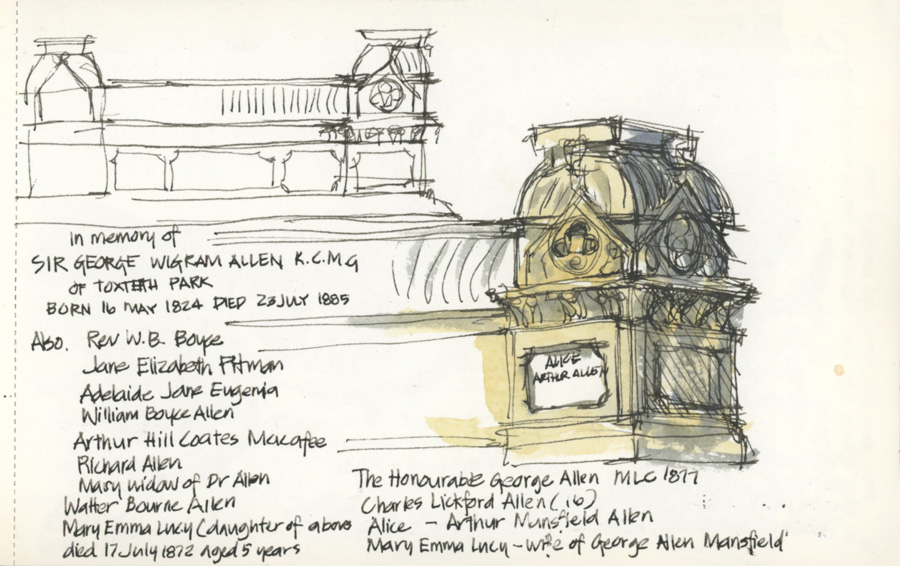 In memory of
SIR GEORGE WIGRAM ALLEN K.C.M.G
OF TOXTETH PARK
BORN 16 MAY 1824 DIED 23 JULY 1885
Also. Rev W.B. Boyce
Jane Elizabeth Pitman
Adelaide Jane Eugenia
William Boyce Allen
Arthur Hill Coates Macafee
Richard Allen
Mary widow of Dr Allen
Walter Bourne Allen
Mary Emma Lucy (daughter of above
died 17 July 1872 aged 5 years
ALICE
ARTHUR ALLEN
The Honourable George Allen MLC 1877
Charles Lickford Allen (16)
Alice - Arthur Mansfield Allen
Mary Emma Lucy - wife of George Allen Mansfield